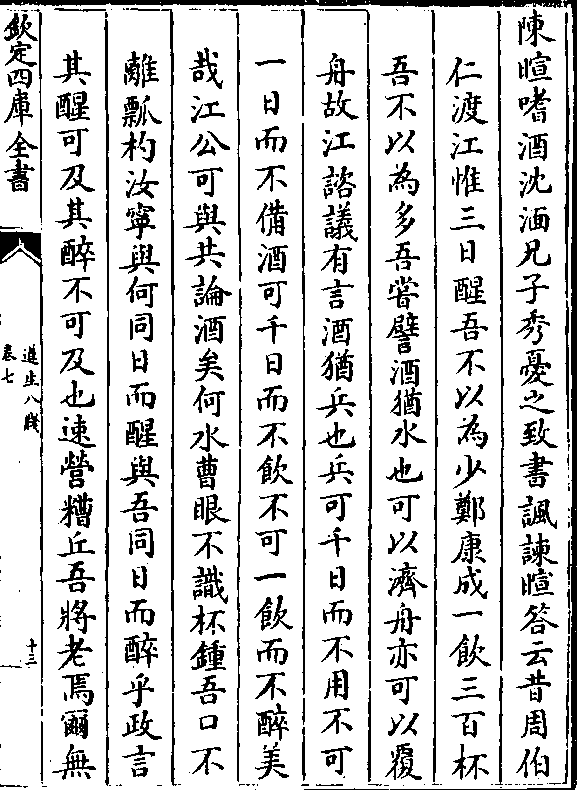 陳暄嗜酒沈湎兄子秀憂之致書諷諫暄答云昔周伯
仁渡江惟三日醒吾不以為少鄭康成一飲三百杯
吾不以為多吾嘗譬酒猶水也可以濟舟亦可以覆
舟故江諮議有言酒猶兵也兵可千日而不用不可
一日而不備酒可千日而不飲不可一飲而不醉美
哉江公可與共論酒矣何水曹眼不識杯鍾吾口不
離瓢杓汝寧與何同日而醒與吾同日而醉乎政言
其醒可及其醉不可及也速營糟丘吾將老焉爾無
欽定四庫全書
卷七
遵生八牋
十三